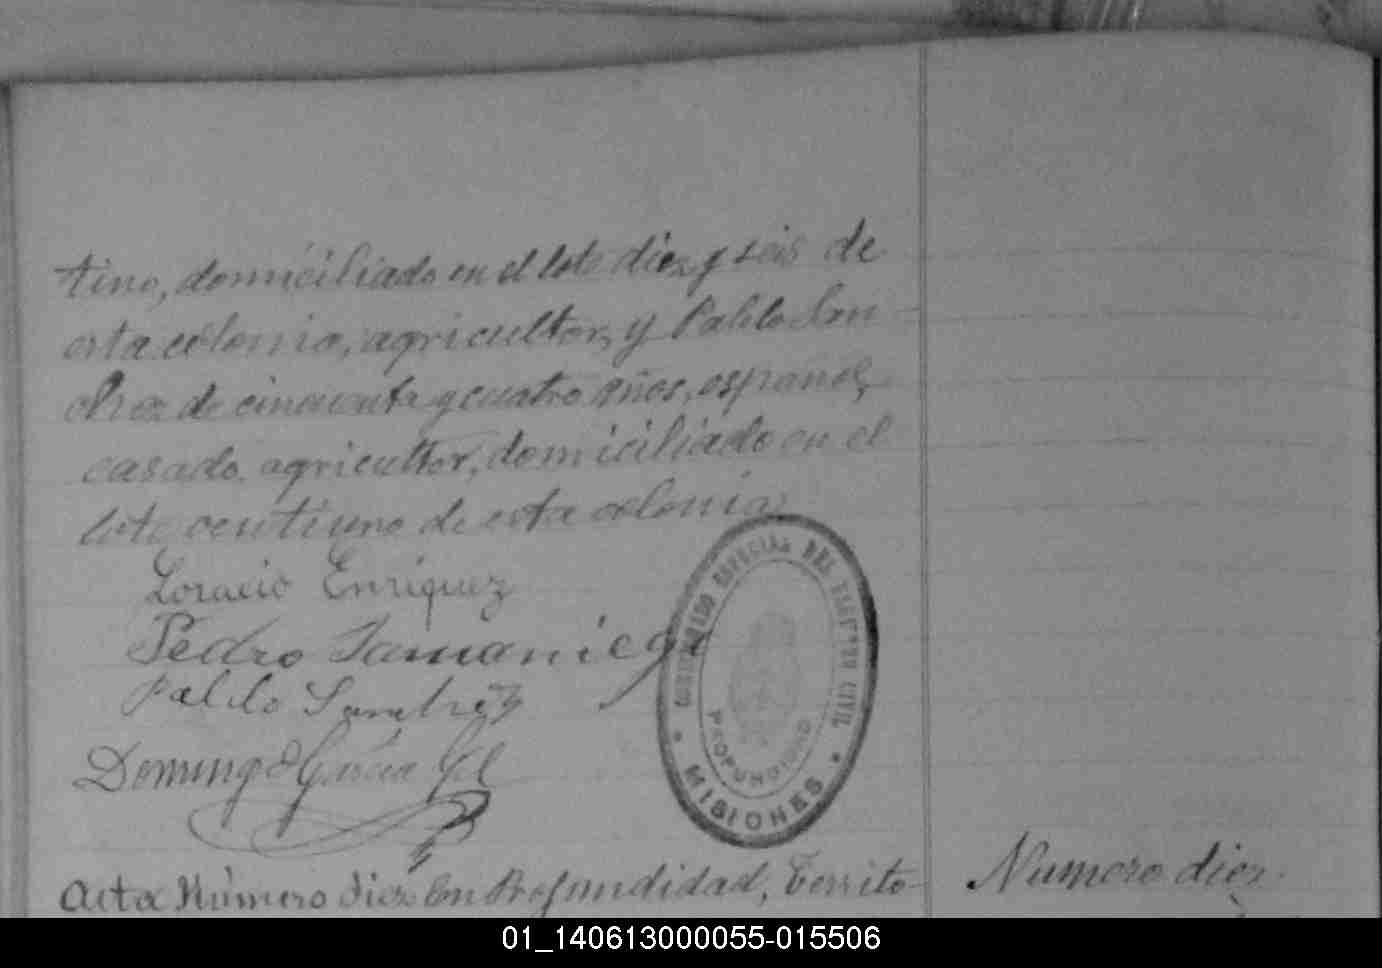 tino, domiciliado en el lote diez y seis de
esta colonia, agricultor, y Pablo San-
chez de cincuenta y cuatro años, español,
casado, agricultor, domiciliado en el
lote ventiuno de esta colonia.
Loracio Enriquez
Pedro Samaniego
Pablo Sanchez
Domingo García Gil
ESPECIAL DEL REGISTRO CIVIL
PROFUNDIDAD
MISIONES
Acta Número diez En Profundidad, Territo-
Numero diez.
01_140613000055-015506